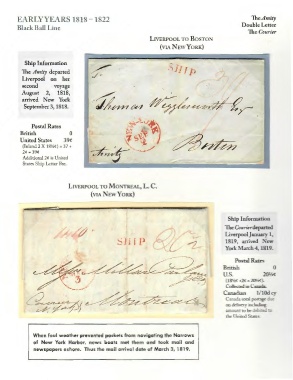 EARLY YEARS 1818 – 1822
Black Ball Line
The Amity
Double Letter
The Courier
LIVERPOOL TO BOSTON
(VIA NEW YORK)
Ship Information
The Amity departed
Liverpool on her
second voyage
August 2, 1818,
arrived New York
September 3, 1818.
Postal Rates
British 0
United States 39¢
Additional 2¢ is United
States Ship Letter Fee.
SHIP
Thomas Wigglesworth Esq
NEW-YORK
SEP
Boston
Amity
LIVERPOOL TO MONTREAL, L. C.
(VIA NEW YORK)
SHIP
Montreal
Ship Information
The Courier departed
Liverpool January 1,
1819, arrived New
York March 4, 1819.
Postal Rates
British 0
U.S. 20½¢
Collected in Canada.
Canadian
Canada total postage due
on delivery including
amount to be deferred to
the United States.
When foul weather prevented packets from navigating the Narrows
of New York Harbor, news boats met them and took mail and
newspapers ashore. Thus the mail arrival date of March 3, 1819.